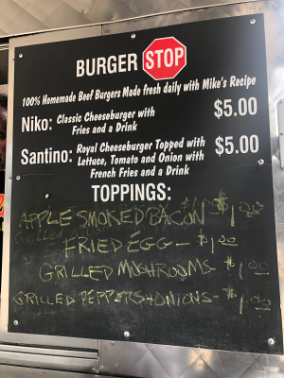 BURGER STOP
100% Homemade Beef Burgers Made fresh daily with Mike's Recipe
Niko: Classic Cheeseburger with $5.00
Fries and a Drink
Santino: Royal Cheeseburger Topped with $5.00
Lettuce, Tomato and Onion with
French Fries and a Drink
TOPPINGS:
APPLE SMOKED BACON $1.00
FRIED EGG - $1.00
GRILLED MUSHROOMS - $1.00
GRILLED PEPPERS + ONIONS - $1.00